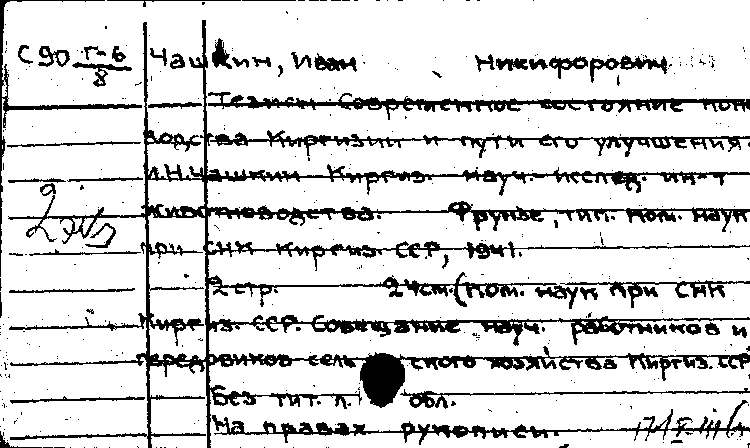 С 90 г-6/8 Чашкин, Иван Никифорович
Тезисы Современное состояние коне
водства Киргизии и пути его улучшения.
И.Н. Чашкин Киргиз. науч.- исслед. ин-т
животноводства. Фрунзе, тип. Ком. наук
при СНК Киргиз. ССР, 1941.
2 экз
2 стр. 24 см. (Ком. наук при СНК
Киргиз. ССР. Совещание науч. работников и
передовиков сель ского хозяйства Киргиз. ССР
Без тит. л. обл.
На правах рукописи.